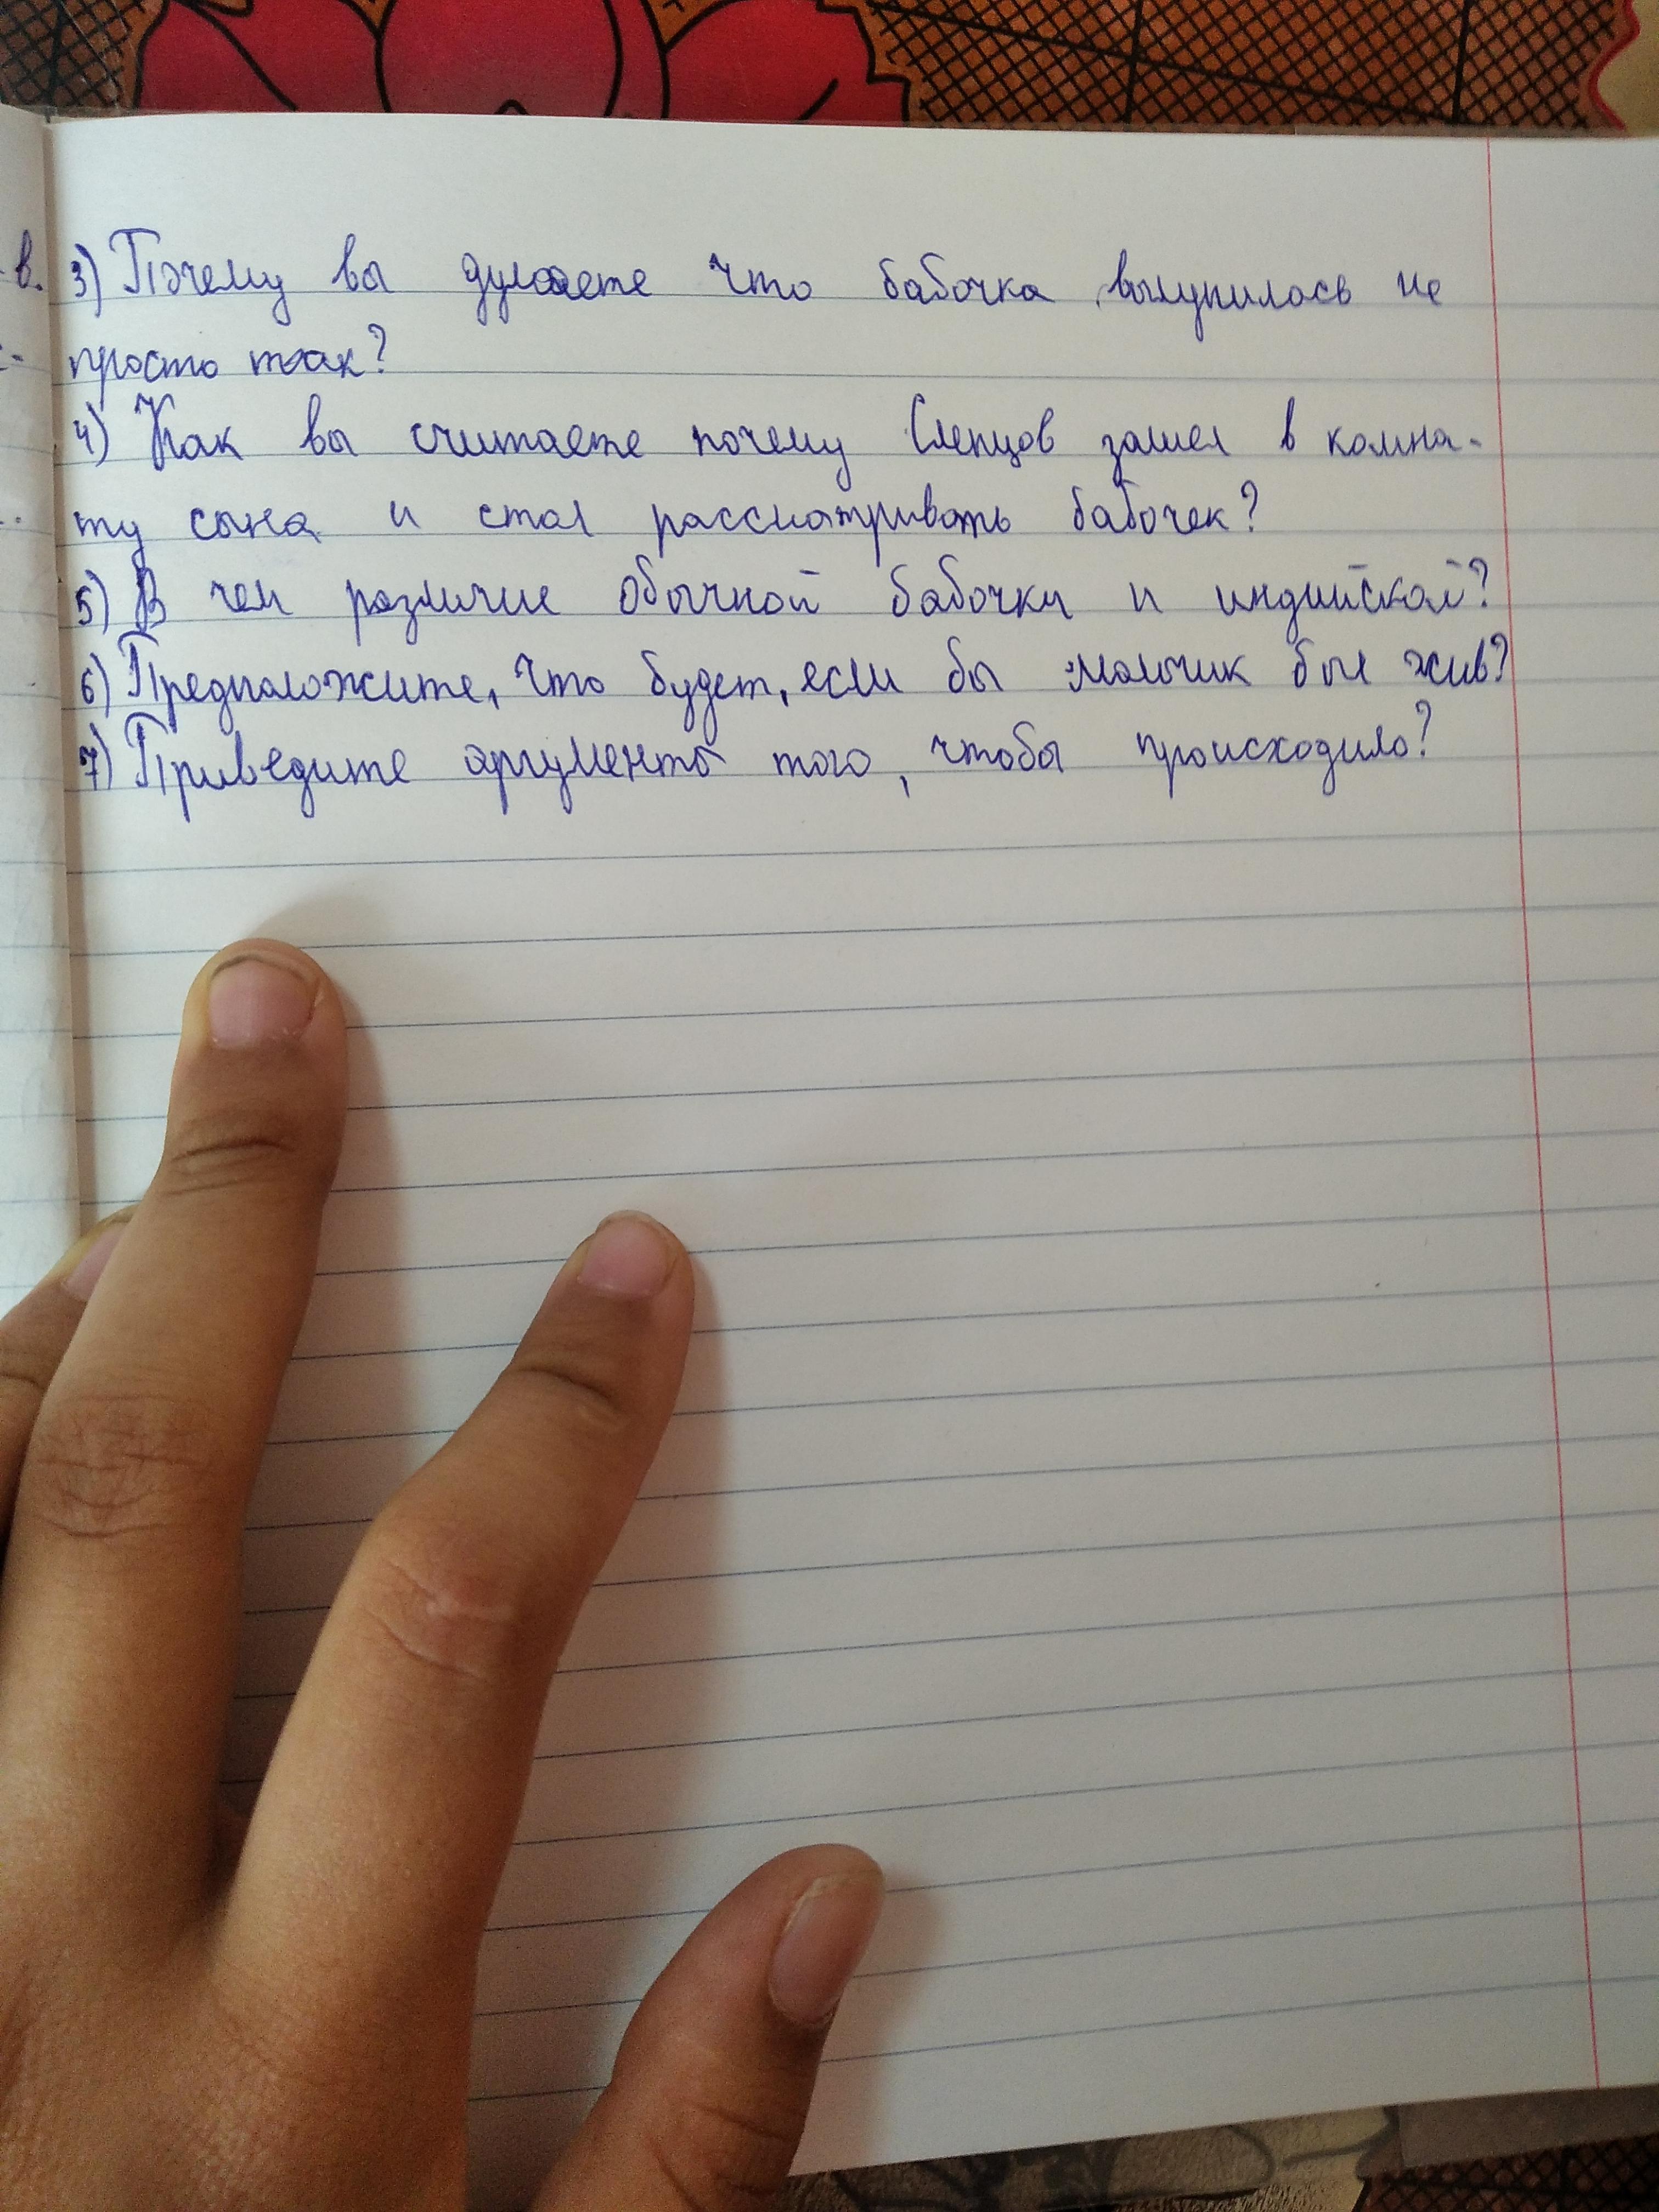 в.
3) Почему вы думаете что бабочка вылупилась не
просто так?
4) Как вы считаете почему Слепцов зашел в комна-
ту сына и стал рассматривать бабочек?
5) В чем различие обычной бабочки и индийской?
6) Предположите, что будет, если бы мальчик был жив?
7) Приведите аргументы того, чтобы происходило?